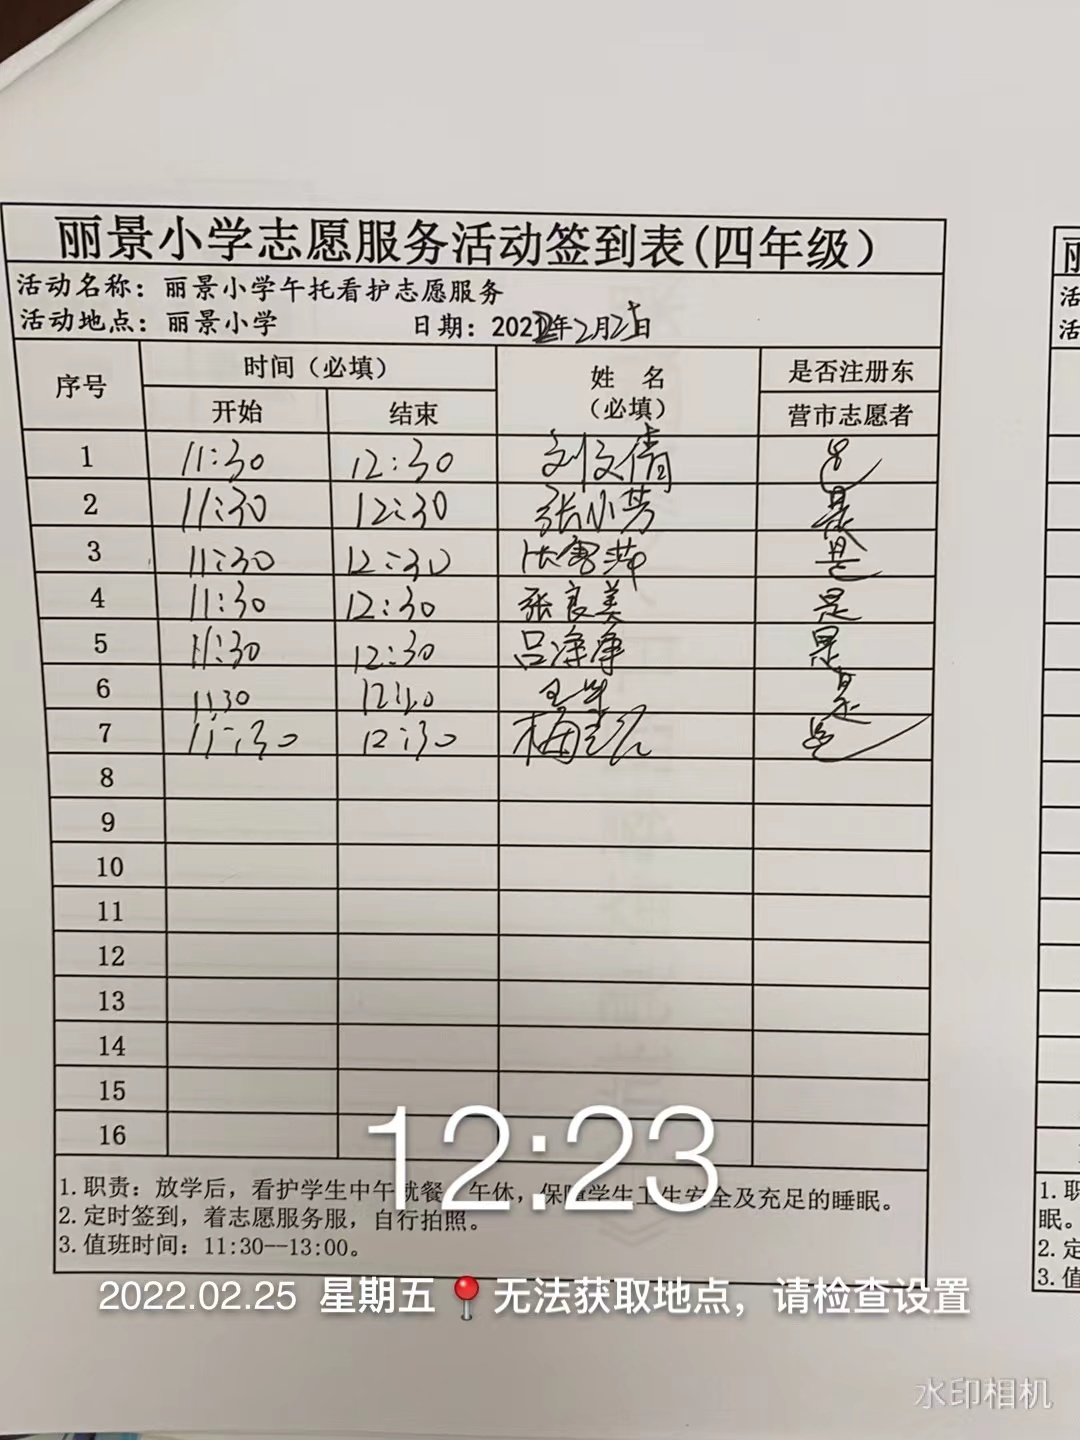 丽景小学志愿服务活动签到表(四年级）
活动名称：丽景小学午托看护志愿服务
活动地点：丽景小学 日期：2022年2月25日
序号 时间（必填） 姓 名 （必填） 是否注册东
开始 结束 营市志愿者
1 11:30 12:30 刘文倩 是
2 11:30 12:30 张小芳 是
3 11:30 12:30 是
4 11:30 12:30 张良美 是
5 11:30 12:30 吕净净 是
6 11:30 是
7 11:30 12:30 是
8
9
10
11
12
13
14
15
16
12:23
1.职责：放学后，看护学生中午就餐、午休，保障学生卫生安全及充足的睡眠。
2.定时签到，着志愿服务服，自行拍照。
3.值班时间：11:30--13:00。
2022.02.25 星期五 无法获取地点，请检查设置
水印相机
活
活
1.职
眠。
2.定
3.值